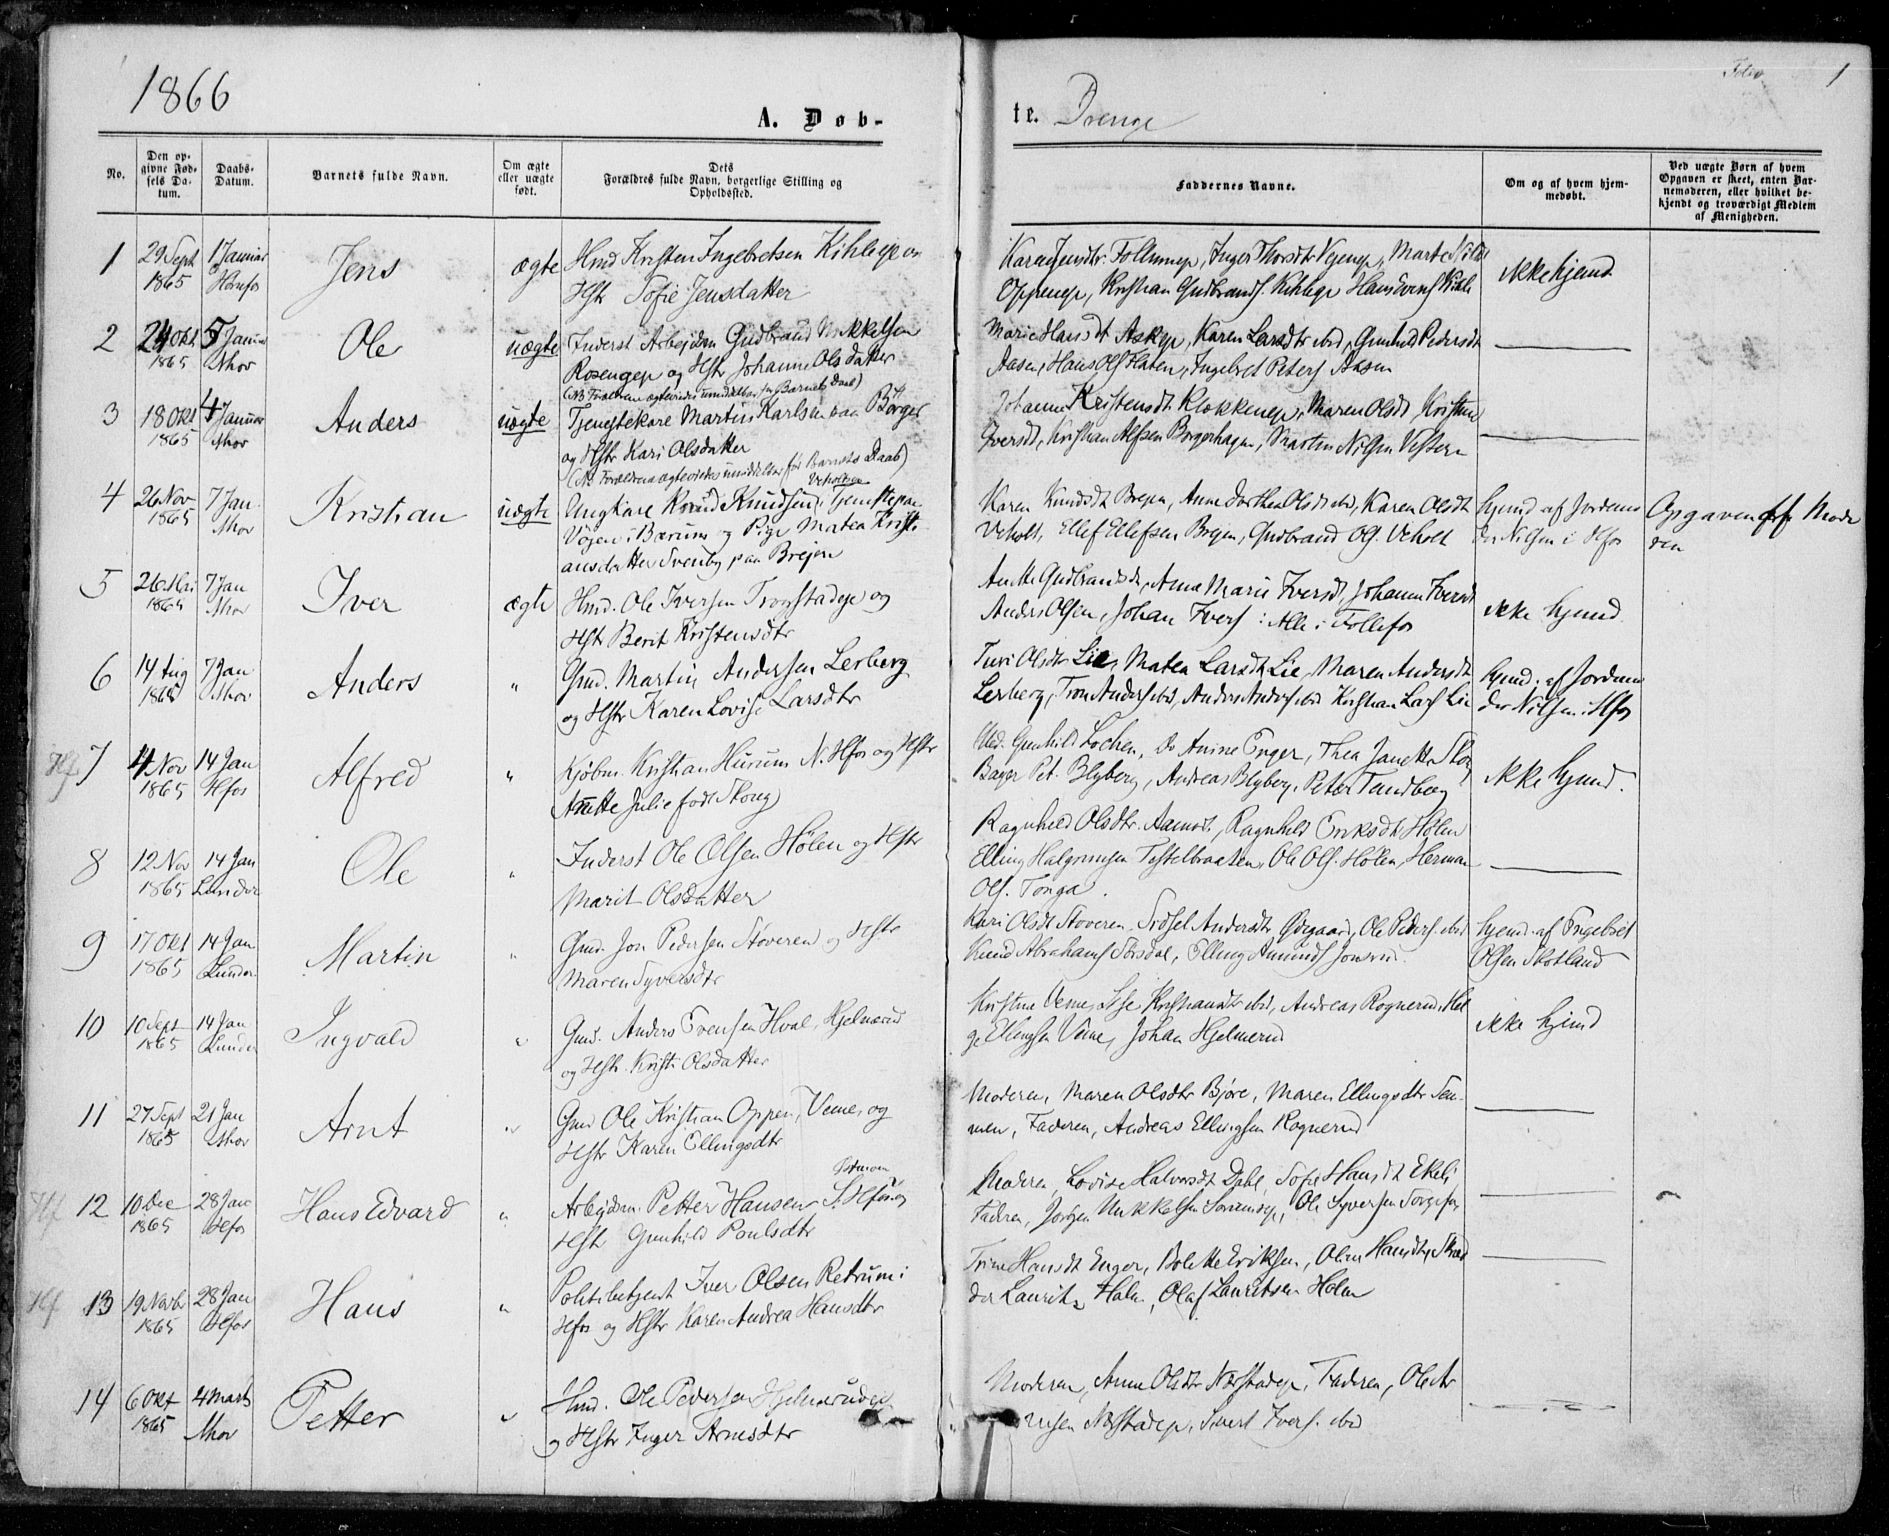 1866
A. Døb-
te. Drenge
Folio 1
No.
Den op-
givne Fød-
sels Da-
tum.
Daabs-
Datum.
Barnets fulde Navn.
Om ægte
eller uægte
født.
Dets
Forældres fulde Navn, borgerlige Stilling og
Opholdssted.
Faddernes Navne.
Om og af hvem hjem-
medøbt.
Ved uægte Børn af hvem
Opgaven er skeet, enten Bar-
nemoderen, eller hvilket be-
kjendt og troværdigt Medlem
af Menigheden.
1 29 Sept 1865 1 Januar Hønefos Jens ægte Hmd Kristen Ingebretsen Kihleje og
Hstr Sofie Jensdatter
Oppeneje, Kristian Gudbrands. Kihleje
ikke hjemd
2 24 Okt 1865 5 Januar Nhov Ole uægte Inderst Arbejdsm Gudbrand Mikkelsen
Roseneje og Hstr Johanne Olsdatter
(NB Forældrene ægteviedes umiddelbar før Barnets Daab)
Marie Hansdt Askeje, Karen Larsdtr ibid, Gunhild Pedersdt
Aasen, Hans Ols Haten, Ingebret Peters Aasen
3 18 Okt 1865 4 Januar Nhov Anders uægte Tjenestekare Martin Karlsen paa Børger
og Hstr Kari Olsdatter
(NB Forældrene ægteviedes umiddelbar før Barnets Daab)
Johanne Kristensdt Klokkereje, Maren Olsdt, Kristine
Iversdt, Kristian Alfsen Borgerhagen, Martin Nilsen Vestern
4 26 Nov 1865 7 Jan Nhov Kristian uægte Ungkare Knud Knudsen Veholden i Tjeneste paa
Vøjen i Bærum og Pige Matea Kristi
ansdatter Svenby paa Brejen
Karen Knudsdt Brejen, Anne Dorthea Olsdt ibid, Karen Olsdt
Veholt, Ellef Elefsen Brejen, Gudbrand Ols. Veholt
hjemd af Jordemo
der Nilsen i Hfos
Opgaven af Mode
ren
5 26 1865 7 Jan Nhov Iver ægte Hmd. Ole Iversen Trogstadeje og
Hstr Berit Kristensdtr
Anette Gudbrandsdt, Anne Marie Iversdt, Johanne Iversdt
Anders Olsen, Johan Ivers : Alle i Follefos
ikke hjemd
6 14 Aug 1865 7 Jan Nhov Anders " Gmd. Martin Andersen Lerberg
og Hstr Karen Lovise Larsdtr
Turi Olsdtr Lie, Matea Larsdt Lie, Maren Andersdt
Lerberg, Tron Anders ibid, Anders Anders ibid Kristian Lars Lie
hjemd. af Jordemo
der Nilsen i Hfos
7 4 Nov 1865 14 Jan Hfos Alfred " Kjøbm. Kristian Husum N. Hfos og Hstr
Anette Julie født Skoug
Mad. Gunhild Lochen, Do Anine Enger, Thea Janette Skoug
Bager Pet. Blyberg, Andreas Blyberg, Peter Tandberg
ikke hjemd.
8 12 Nov 1865 14 Jan Lunder Ole " Inderst Ole Olsen Hølen og Hstr
Marit Olsdatter
Ragnhild Olsdtr. Aamot, Ragnhild Eriksdt Hølen
Elling Halgrimsen Testelbraaten, Ole Ols. Hølen, Herman
Ols. Tonga.
9 17 Okt 1865 14 Jan Lunder Martin " Gmd. Jon Pedersen Støveren og Hstr
Maren Syversdtr
Kari Olsdt Støveren, Sidsel Andersdt Ødegaard, Ole Peders. ibid
Knud Abrahams Sørsdal, Elling Amunds Jonsrud.
hjemd. af Ingebret
Olsen Skotland
10 10 Sept 1865 14 Jan Lunder Ingvald " Gmd. Anders Evensen Hval, Hjelmerud
og Hstr. Kristi Olsdatter
Kristine Veme, Lise Kristiansdtr ibid, Andreas Rognerud, Hel
ge Ellingsen Veme, Johan Hjelmerud
ikke hjemd
11 27 Sept 1865 21 Jan Nhov Arnt " Gmd Ole Kristian Oppen, Veme, og
Hstr Karen Ellingsdtr
Moderen, Maren Olsdtr Bjøre, Maren Ellingsdtr Sen-
men, Faderen, Andreas Ellingsen Rognerud
Hf 12 10 Dec 1865 28 Jan Hfos Hans Edvard " Arbejdsm. Petter Hansen S. Hfos og
Hstr Gunhild Poulsdtr
Moderen, Lovise Halvorsdt Dahl, Sofie Hansdt Ekeli
Faderen, Jørgen Mikkelsen, Ole Syversen
Hf 13 19 Novbr 1865 28 Jan Hfos Hans " Politibetjent Iver Olsen Retrum i
Hfos og Hstr Karen Andrea Hansdtr
Trine Hansdt Enger, Bolette Eriksen, Oline Hansdt, Skræd
der Lauritz Holm, Olaf Lauritsen Holm
14 6 Okt 1865 4 Marts Nhov Petter " Hmd. Ole Pedersen Hjelmerudeje
og Hstr Inger Arnesdtr
Moderen, Anne Olsdtr Narstadeje, Faderen, Ole
Narstadeje, Sivert Ivers. ibid